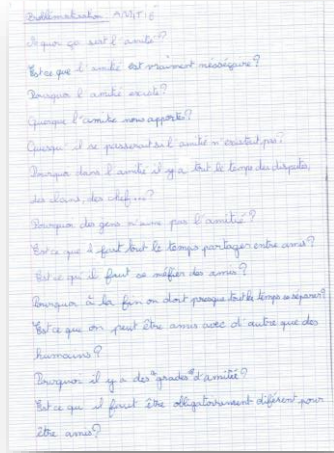 Problématisation AMITIÉ
A quoi ça sert l'amitié ?
Est ce que l'amitié est vraiment nésségaire ?
Pourquoi l'amitié existe ?
Quesque l'amitié nous apporte ?
Quesqu'il se passerait si l'amitié n'existait pas ?
Pourquoi dans l'amitié il y a tout le temps des disputes,
des clans, des chef... ?
Pourquoi des gens n'aime pas l'amitié ?
Est ce que il faut tout le temps partager entre amis ?
Est ce qu'il faut se méfier des amis ?
Pourquoi à la fin on doit presque tout le temps se séparer ?
Est ce que on peut être amis avec d'autre que des
humains ?
Pourquoi il y a des "grades" d'amitié ?
Est ce qu'il faut être obligatoirement différent pour
être amis ?